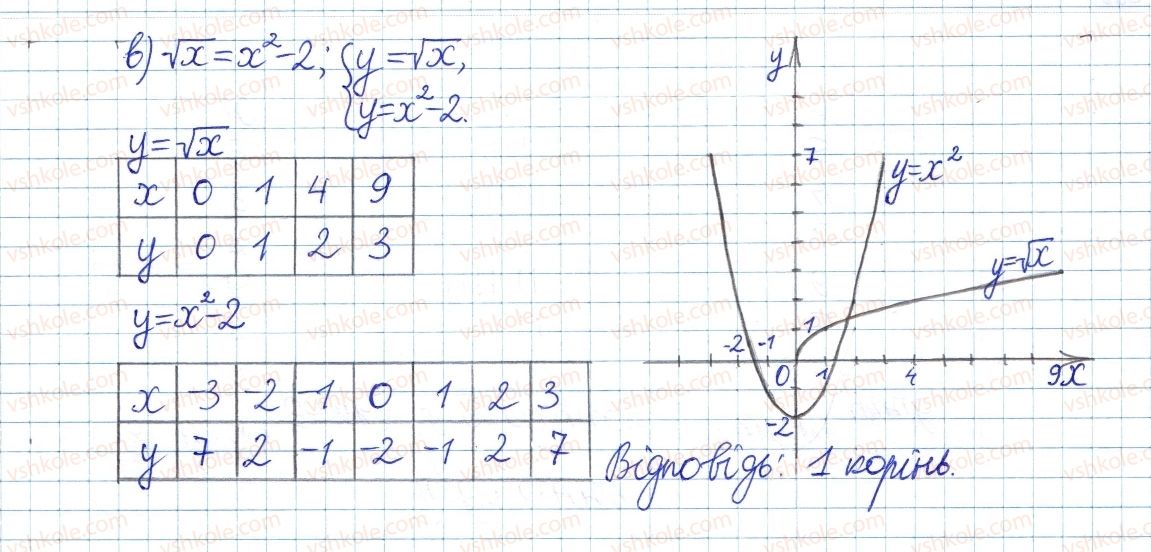 в) √x = x² - 2; { y = √x,
{ y = x² - 2.
y = √x
x 0 1 4 9
y 0 1 2 3
y = x² - 2
x -3 -2 -1 0 1 2 3
y 7 2 -1 -2 -1 2 7
y
7
y = x²
y = √x
1
-2 -1
0 1 4 9 x
-2
Відповідь: 1 корінь.
vshkole.com